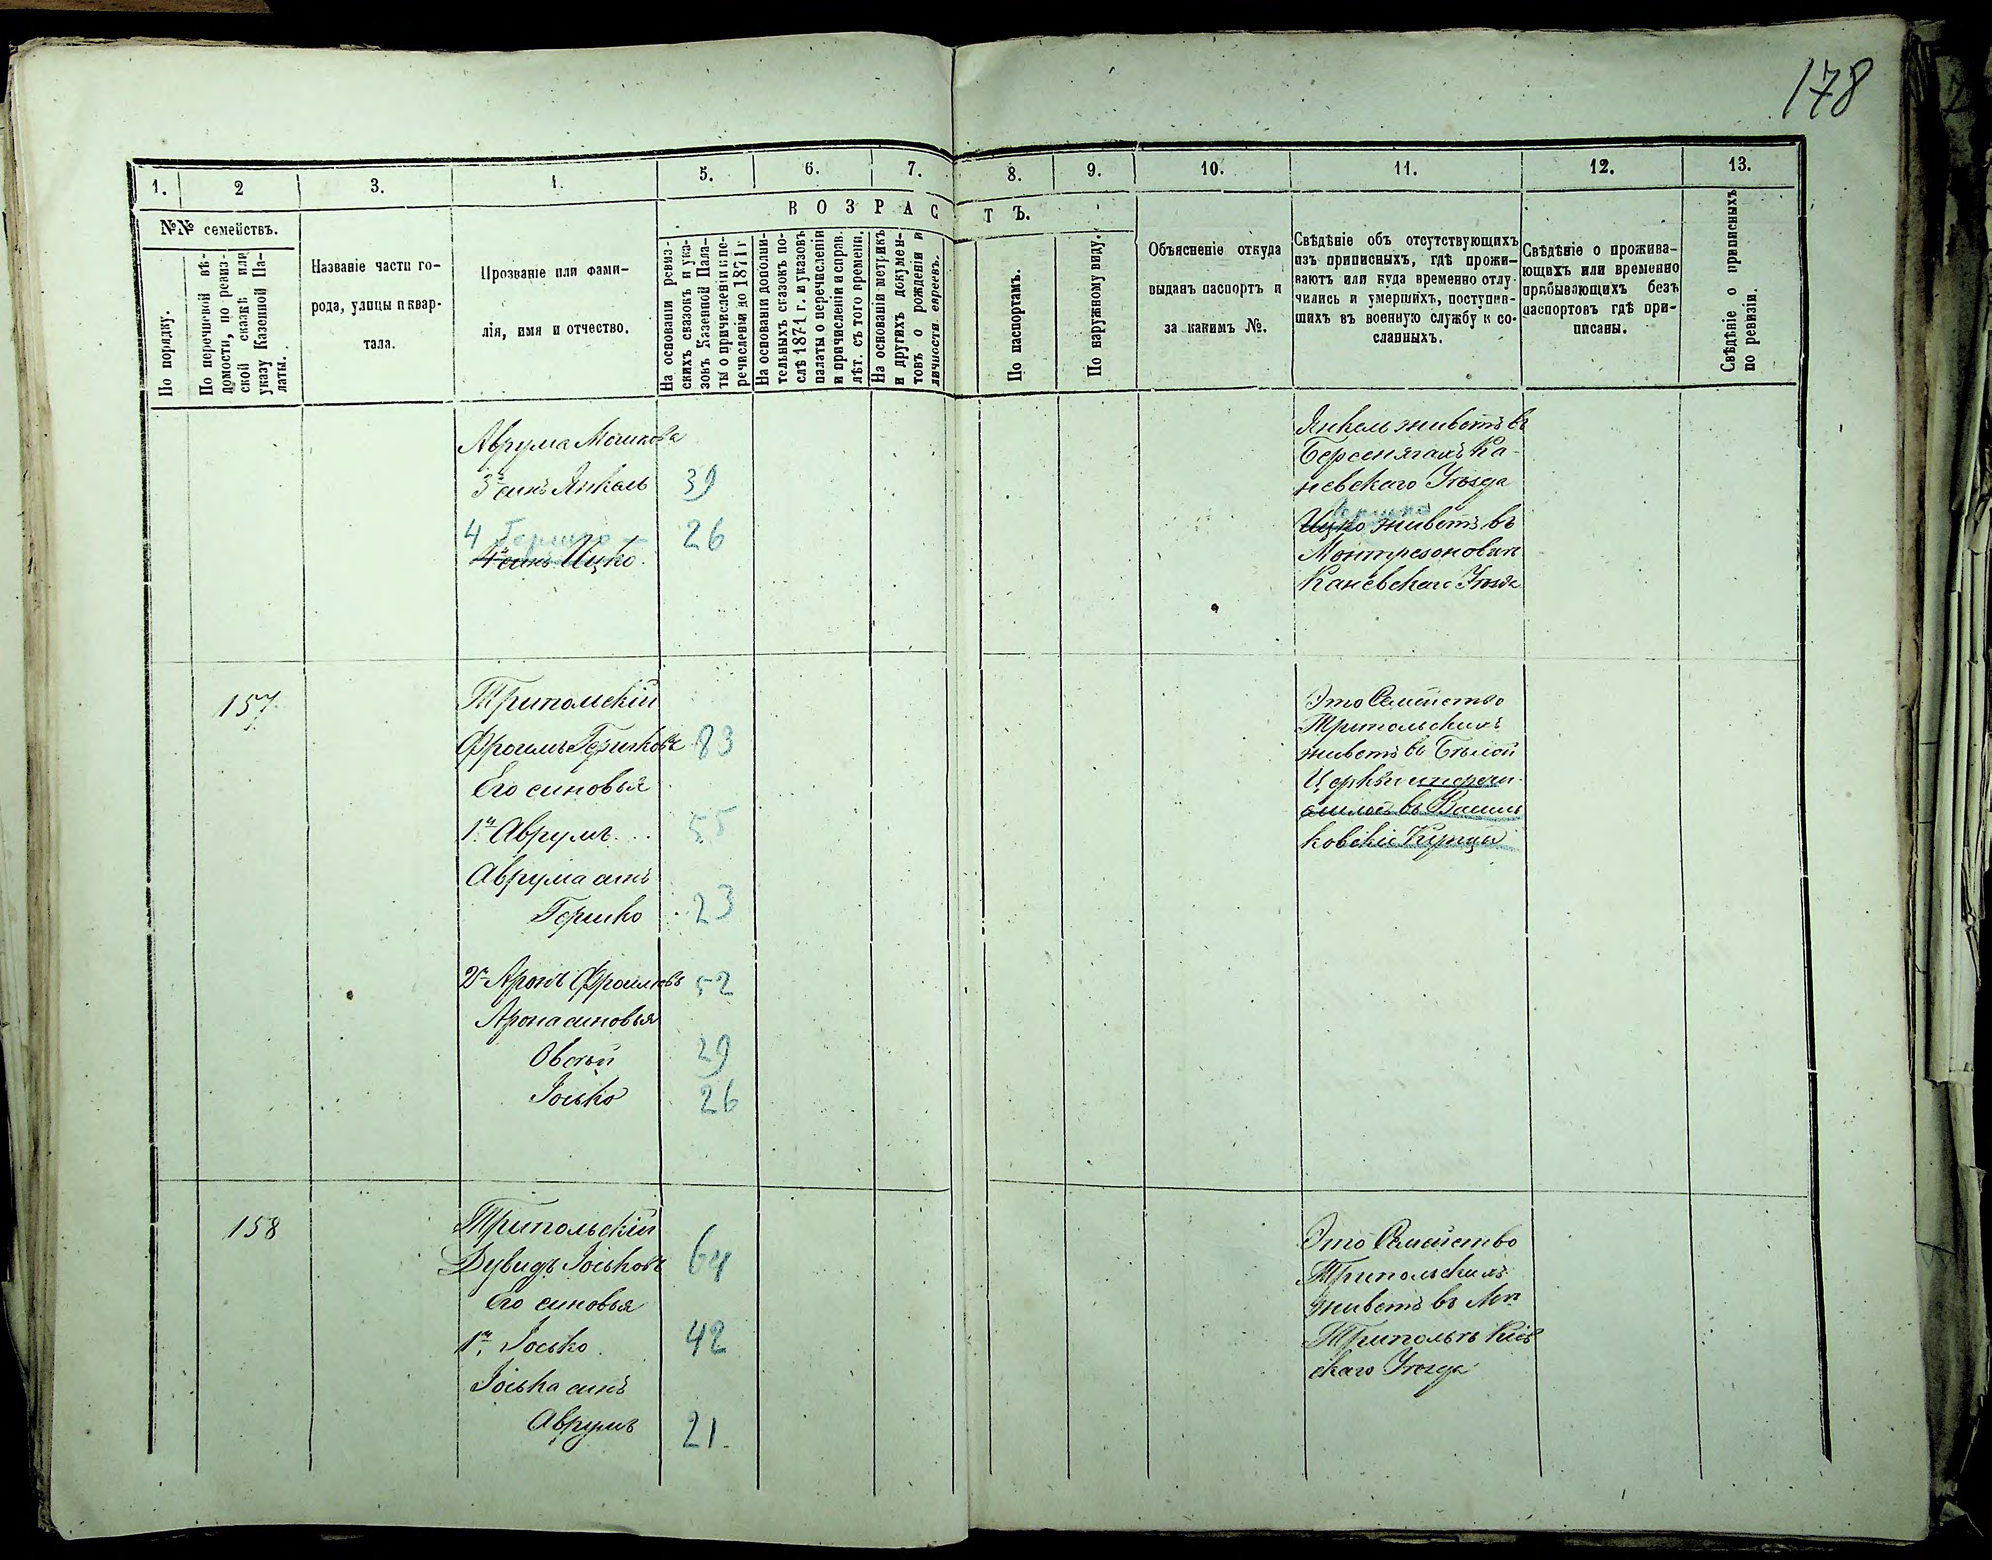 178
1. 2 3. 4. 5. 6. 7. 8. 9. 10. 11. 12. 13.
№№ семействъ.
ВОЗРАСТЪ.
По порядку.
По перечневой вѣ-
домости, по ревиз-
ской сказкѣ или
указу Казенной Па-
латы.
Названіе части го-
рода, улицы и квар-
тала.
Прозваніе или фами-
лія, имя и отчество.
На основаніи ревиз-
скихъ сказокъ и ука-
зовъ Казенной Пала-
ты о причисленіи и пе-
речисленіи до 1871 г
На основаніи дополни-
тельныхъ сказокъ по-
слѣ 1874 г. и указовъ
палаты о перечисленіи
и причисленіи и справ.
лѣт. съ того времени.
На основаніи метрикъ
и другихъ докумен-
товъ о рожденіи и
личности евреевъ.
По паспортамъ.
По наружному виду.
Объясненіе откуда
выданъ паспортъ и
за какимъ №.
Свѣдѣніе объ отсутствующихъ
изъ приписныхъ, гдѣ прожи-
ваютъ или куда временно отлу-
чились и умершихъ, поступив-
шихъ въ военную службу и со-
сланныхъ.
Свѣдѣніе о прожива-
ющихъ или временно
пребывающихъ безъ
паспортовъ гдѣ при-
писаны.
Свѣдѣніе о приписныхъ
по ревизіи.
Аврума Мошкова
3й синъ Янкель 39
4 Гершко — 26
4й синъ Ицко
Янкель живетъ въ
Берсенягахъ Ка-
невскаго Уезда
Гершко
Ицко живетъ въ
Монтрезоновкѣ
Каневскаго Уезда
157
Трипольскій
Фроимъ Гершковъ 83
Его синовья
1й Аврумъ... 55
Аврума синъ
Гершко 23
2й Аронъ Фроимовъ 52
Арона синовья
Овсѣй 29
Іосько 26
Это Семейство
Трипольскихъ
живетъ въ Бѣлой
Церкви и перечи-
слилось въ Василь
ковскіе Купцы
158
Трипольскій
Дувидъ Іоськовъ 64
Его синовья
1й Іосько 42
Іоська синъ
Аврумъ 21
Это Семейство
Трипольскихъ
живетъ въ Мѣ
Трипольѣ Кіев
скаго Уезда